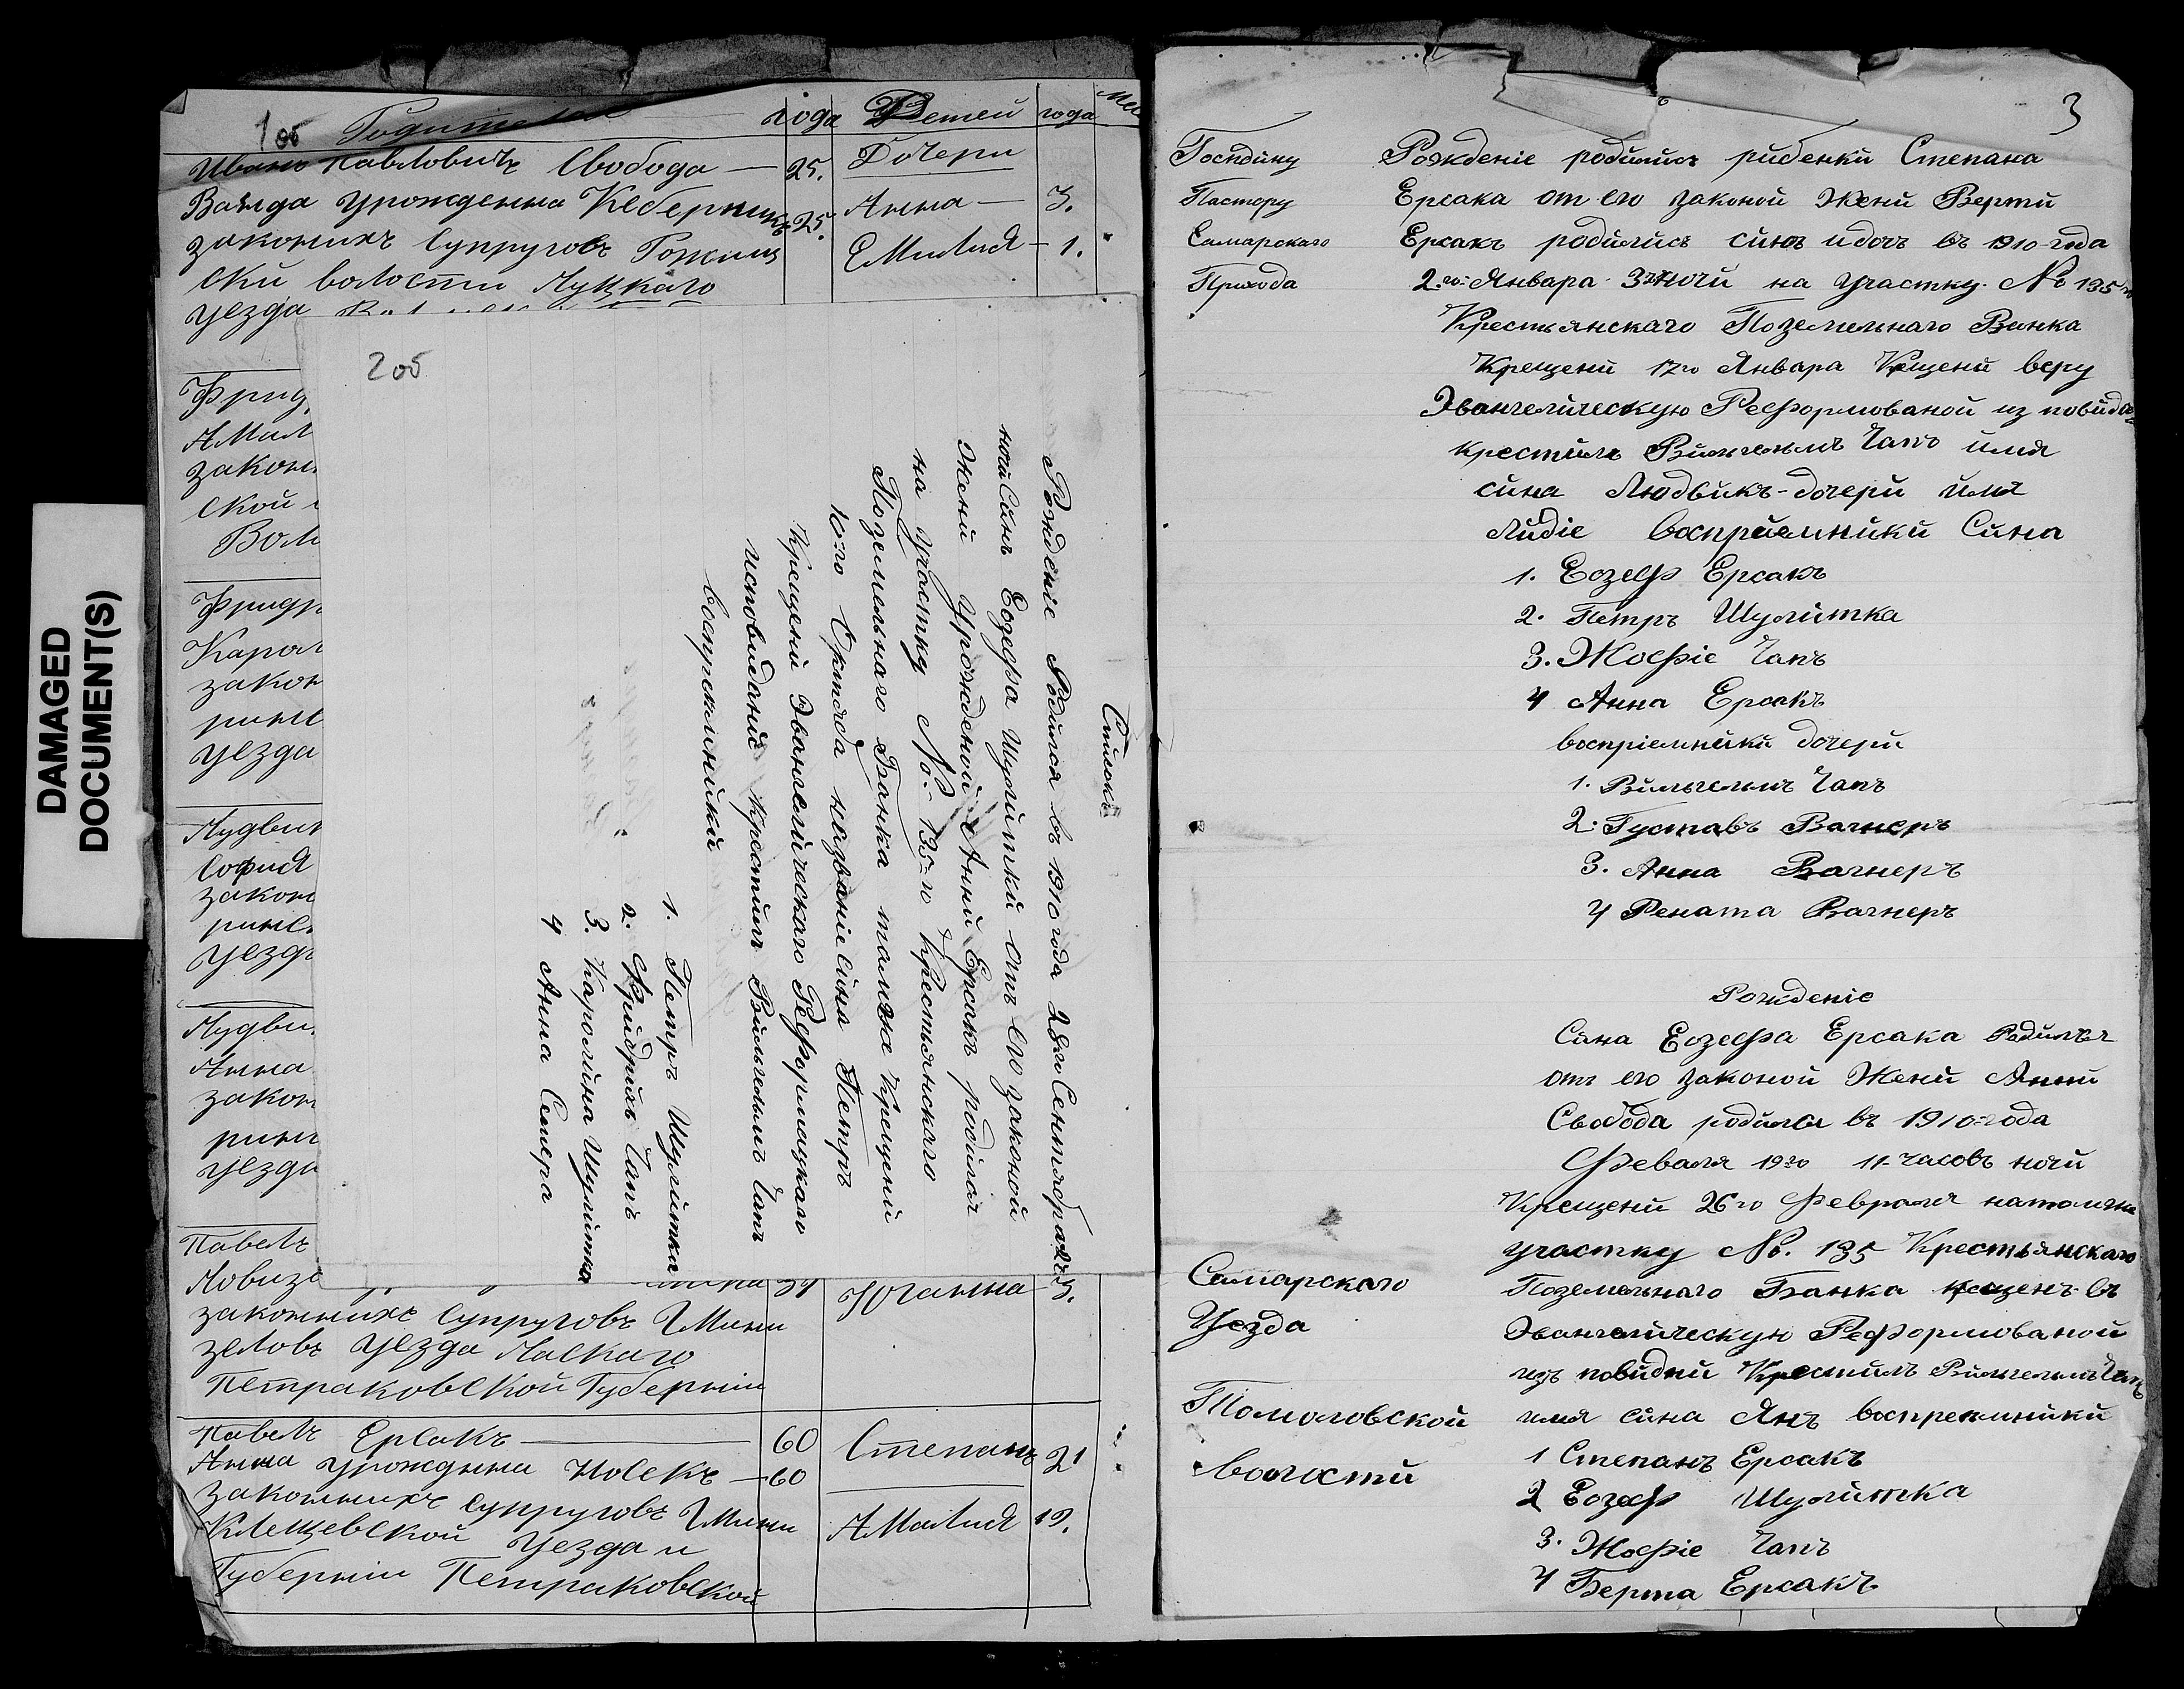 DAMAGED
DOCUMENT(S)
1 об Родители года Детей года
Ивано Павловичъ Свобода — 25. Дочери
Ванда урожденна 25. Анна — 3.
законнихъ Супруговъ Емилия — 1.
ски волости Луцкаго
уезда
Фрид
Амал
закон
ской
Вол
Фридр
Карол
закон
уезда
Лудвик
София
закон
уезд
Лудви
Анна
закон
уезда
Павелъ
Ловиз Юганна 3.
законнихъ Супруговъ Гмини
зеловъ уезда Ласкаго
Петраковской Губернии
Павелъ Ерсакъ — 60 Степанъ 21
Анна урождина Носекъ — 60
законнихъ Супруговъ Гмини Амалия 19.
Клещевской уезда и
Губернии Петраковской
2 об
Спилокъ
Рождение Родился въ 1910 года 28го Сентября
ночи Синъ Еозефа Шулитки отъ его законой
Жени Урожденой Анни Ерсакъ родился
на участку №. 135-го Крестьянскаго
Поземельнаго Банка тамже Крещений
10-го Октяда название Сина Петръ
Крещени Эвангелическаго Реформацкаго
исповидание Крестилъ Вильгельмъ Чапъ
воспремники
1. Петръ Шулитки
2. Фридрихъ Чапъ
3. Каролина Шулитка
4 Анна Семера
3
Господину
Пастору
Самарскаго
Прихода
Рожденіе родились рибенки Степана
Ерсака от его законой Жени Верти
Ерсакъ родились синъ и дочъ въ 1910-года
2.го Января 3 ночи на участку. № 135го
Крестьянскаго Поземельнаго Банка
Крещени 17го Января Кщени веру
Эвангелическую Реформованой из повида
крестилъ Вильгельмъ Чапъ имя
сина Людвикъ-дочери имя
Лидіе восприемники Сина
1. Еозеф Ерсакъ
2. Петръ Шулитка
3. Жофіе Чапъ
4 Анна Ерсакъ
воспріемники дочери
1. Вильгельмъ Чапъ
2. Густавъ Вагнеръ
3. Анна Вагнеръ
4 Рената Вагнеръ
Рожденіе
Сина Еозефа Ерсака Родился
отъ его законой Жени Анни
Свобода родился въ 1910-года
Феваля 19го 11-часовъ ночи
Крещени 26го Февраля натомже
участку №. 135 Крестьянскаго
Поземельнаго Банка кщенъ въ
Эвангелическую Реформованой
изъ повидни Крестилъ Вильгельмъ Чапъ
имя сина Янъ воспремники
1 Степанъ Ерсакъ
2 Еозеф Шулитка
3. Жофіе Чапъ
4 Берта Ерсакъ
Самарскаго
Уезда
Томоловской
волости